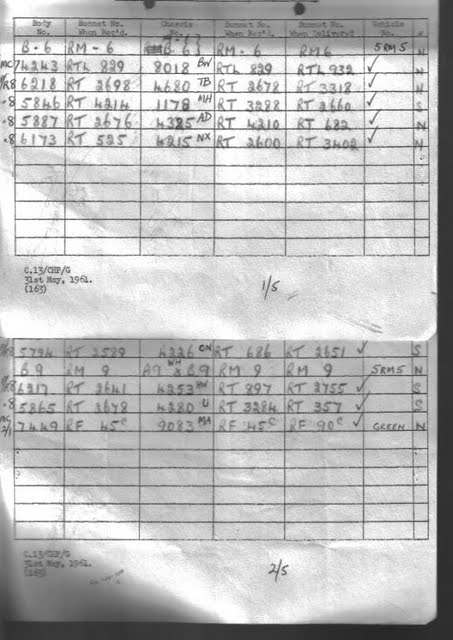 Body No. Bonnet No. When Rec'd. Chassis No. Bonnet No. When Rec'd. Bonnet No. When Delivered Vehicle No.
B-6 RM-6 B-63 RM-6 RM6 5RM5 N
MC 4243 RTL 829 8018 BW RTL 829 RTL 932 ✓ N
R8 6218 RT 2698 4680 TB RT 2678 RT 3318 ✓ N
.8 5846 RT 4214 1178 MH RT 3288 RT 2660 ✓ S
.8 5887 RT 2676 4325 AD RT 4210 RT 682 ✓ N
.8 6173 RT 525 4215 NX RT 2600 RT 3402 ✓ N
C.13/CHP/G
31st May, 1961.
(163)
1/5
R8 5794 RT 2589 4326 CN RT 686 RT 2651 ✓ S
B9 RM 9 A9 & B9 RM 9 RM 9 5RM5 N
R8 6217 RT 2641 4253 HW RT 897 RT 2755 ✓ S
.8 5865 RT 2678 4280 U RT 3284 RT 357 ✓ S
MC 7449 RF 45c 9083 MA RF 45c RF 90c ✓ GREEN N
C.13/CHP/G
31st May, 1961.
(163)
2/5